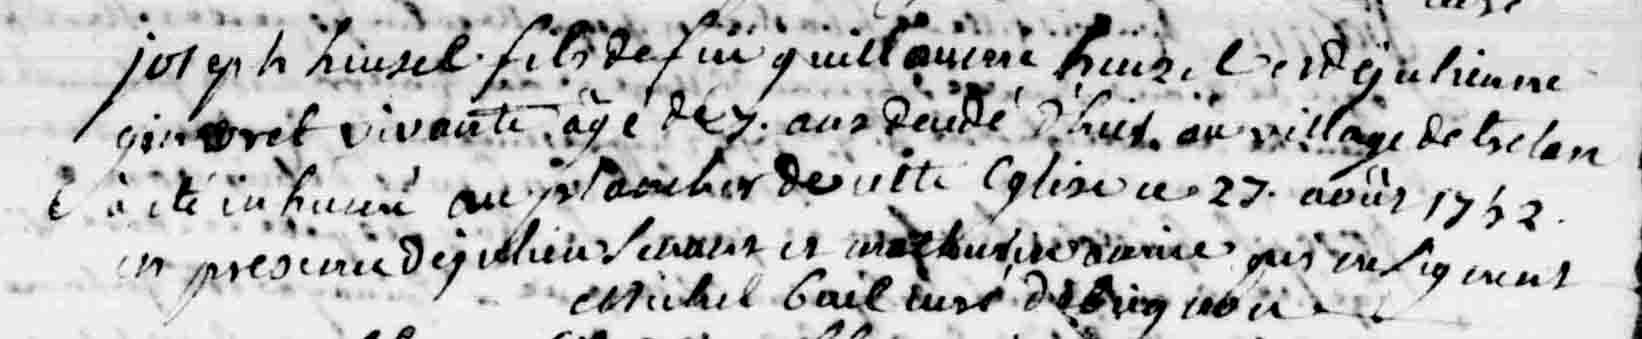 joseph heuzel fils de feu guillaume heuzel et de julienne
vivante âgé de 7. ans decedé d'hier au village de trelan
a été inhumé au placher de cette Eglise ce 27. août 1752.
en presence de julien et mathurine qui ne signent
Michel curé de